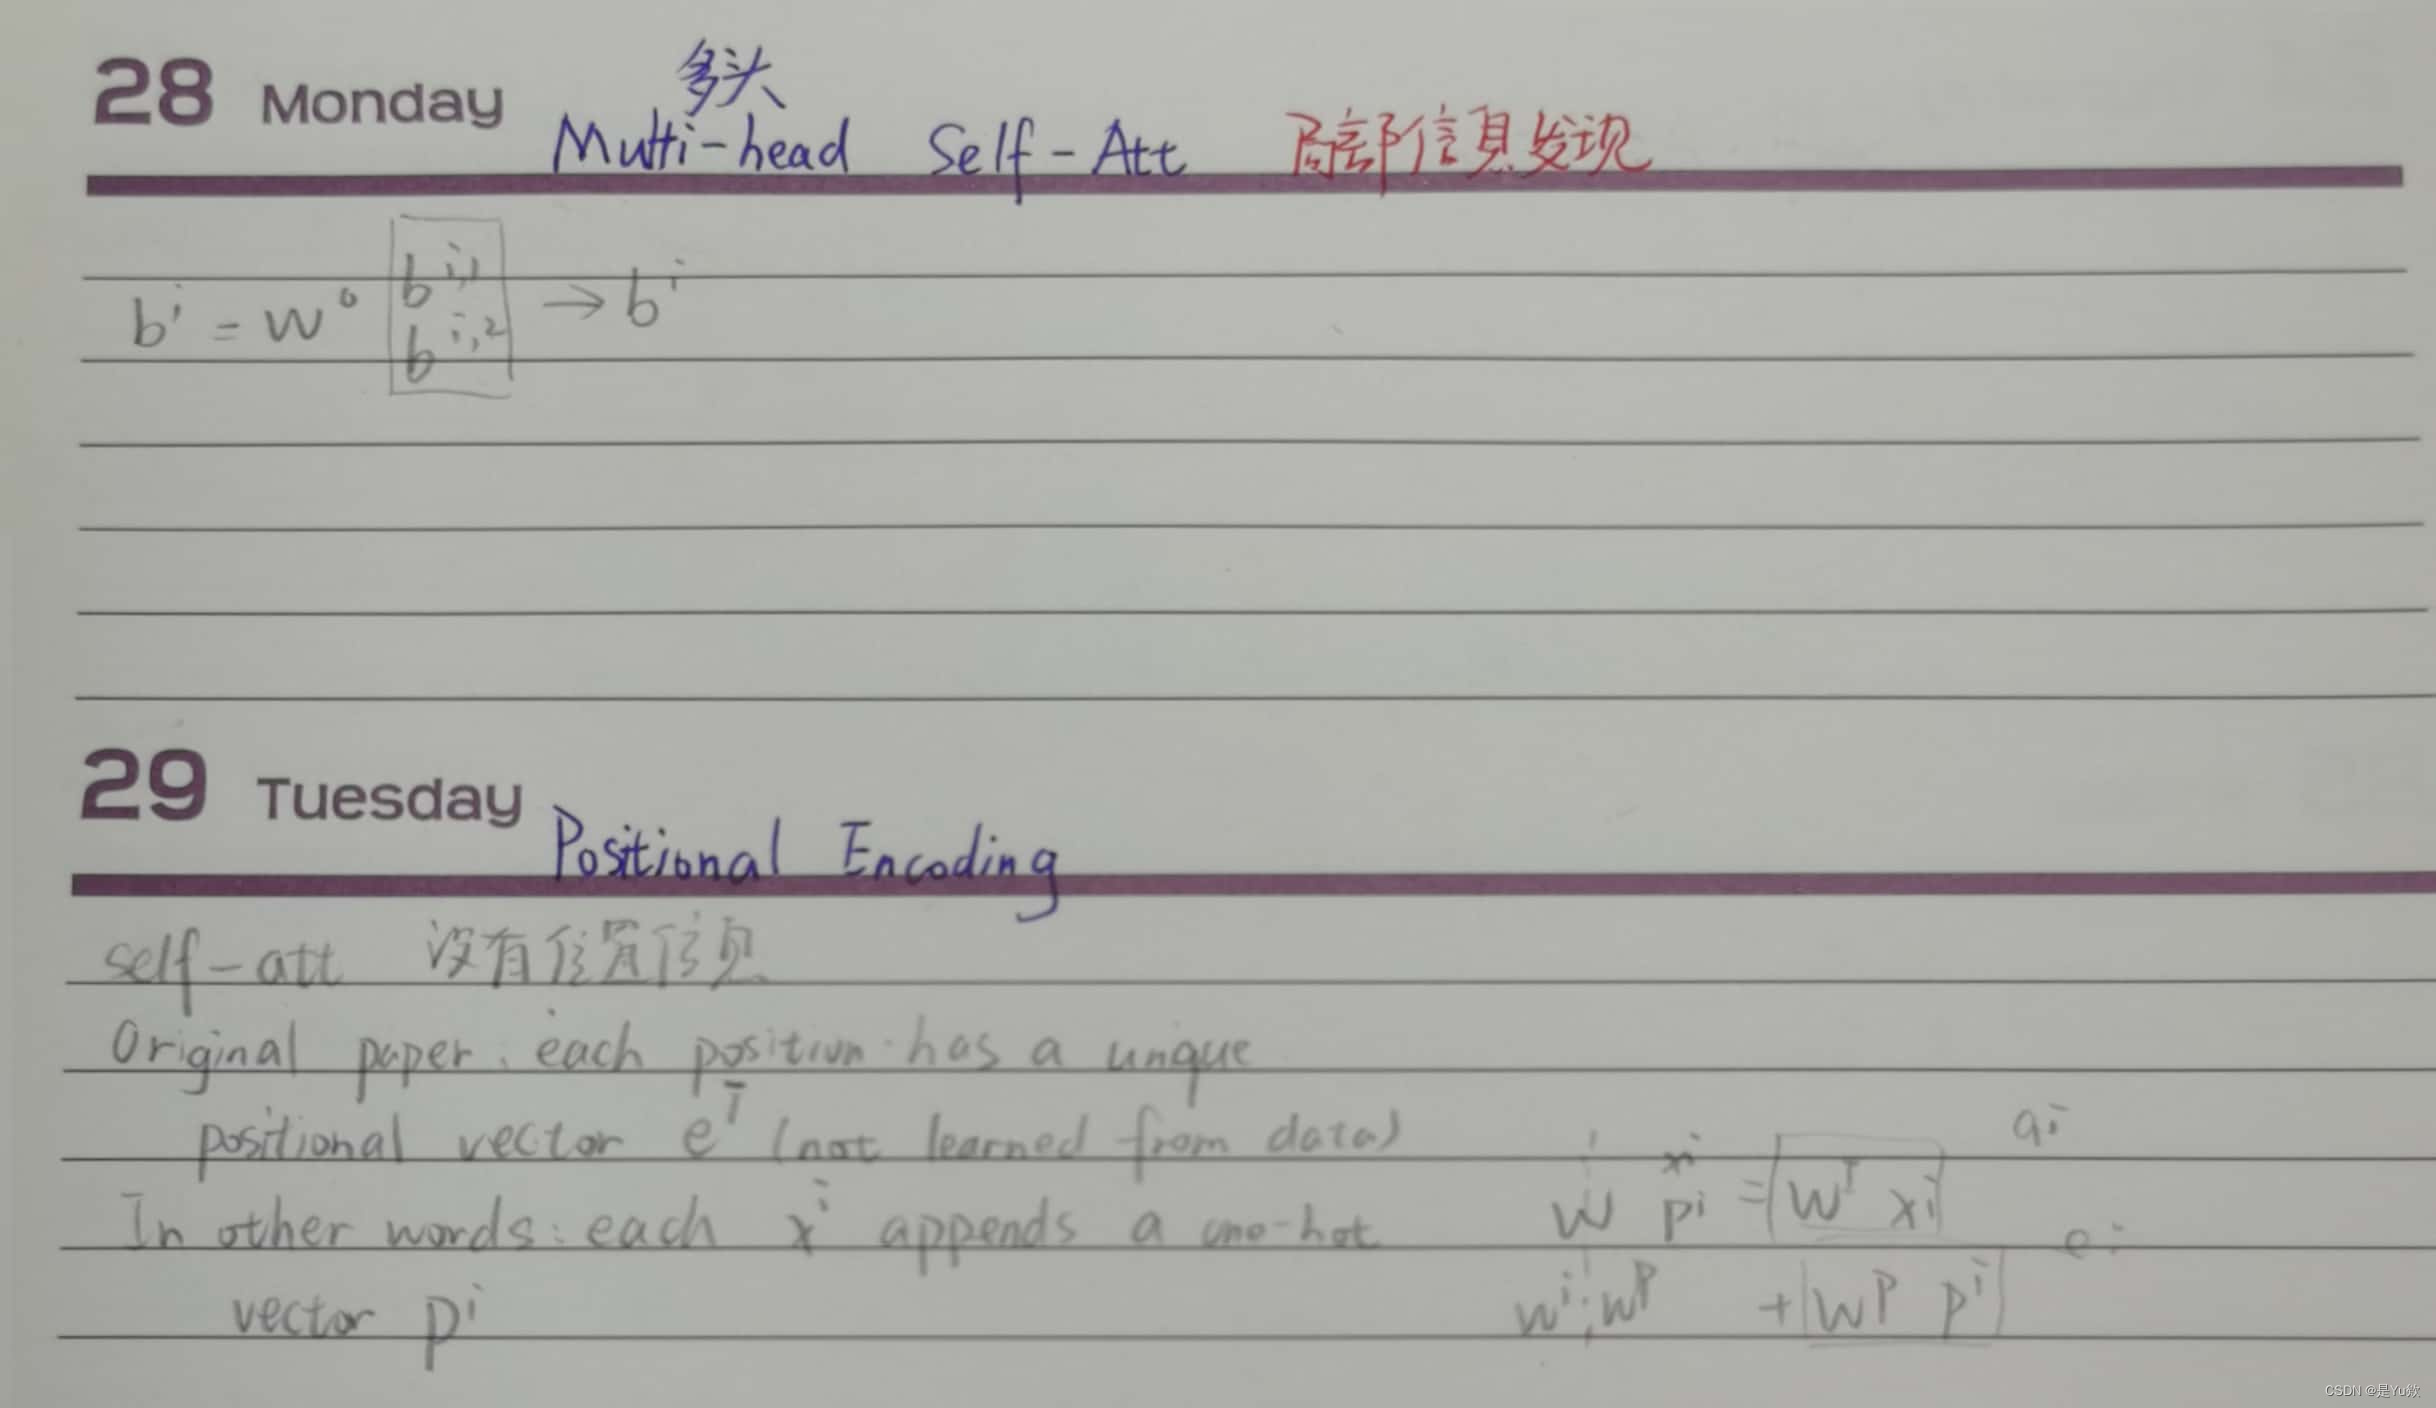 28 Monday
多头
Multi-head Self-Att 局部信息发现
bⁱ = W⁰ bⁱ,¹ → bⁱ
bⁱ,²
29 Tuesday
Positional Encoding
self-att 没有位置信息
Original paper. each position has a unque
positional vector eⁱ (not learned from data)
In other words: each xⁱ appends a one-hot
vector pⁱ
aⁱ
xⁱ
W pⁱ = Wᴵ xⁱ
eⁱ
Wⁱ Wᴾ + Wᴾ pⁱ
CSDN @是Yu欸